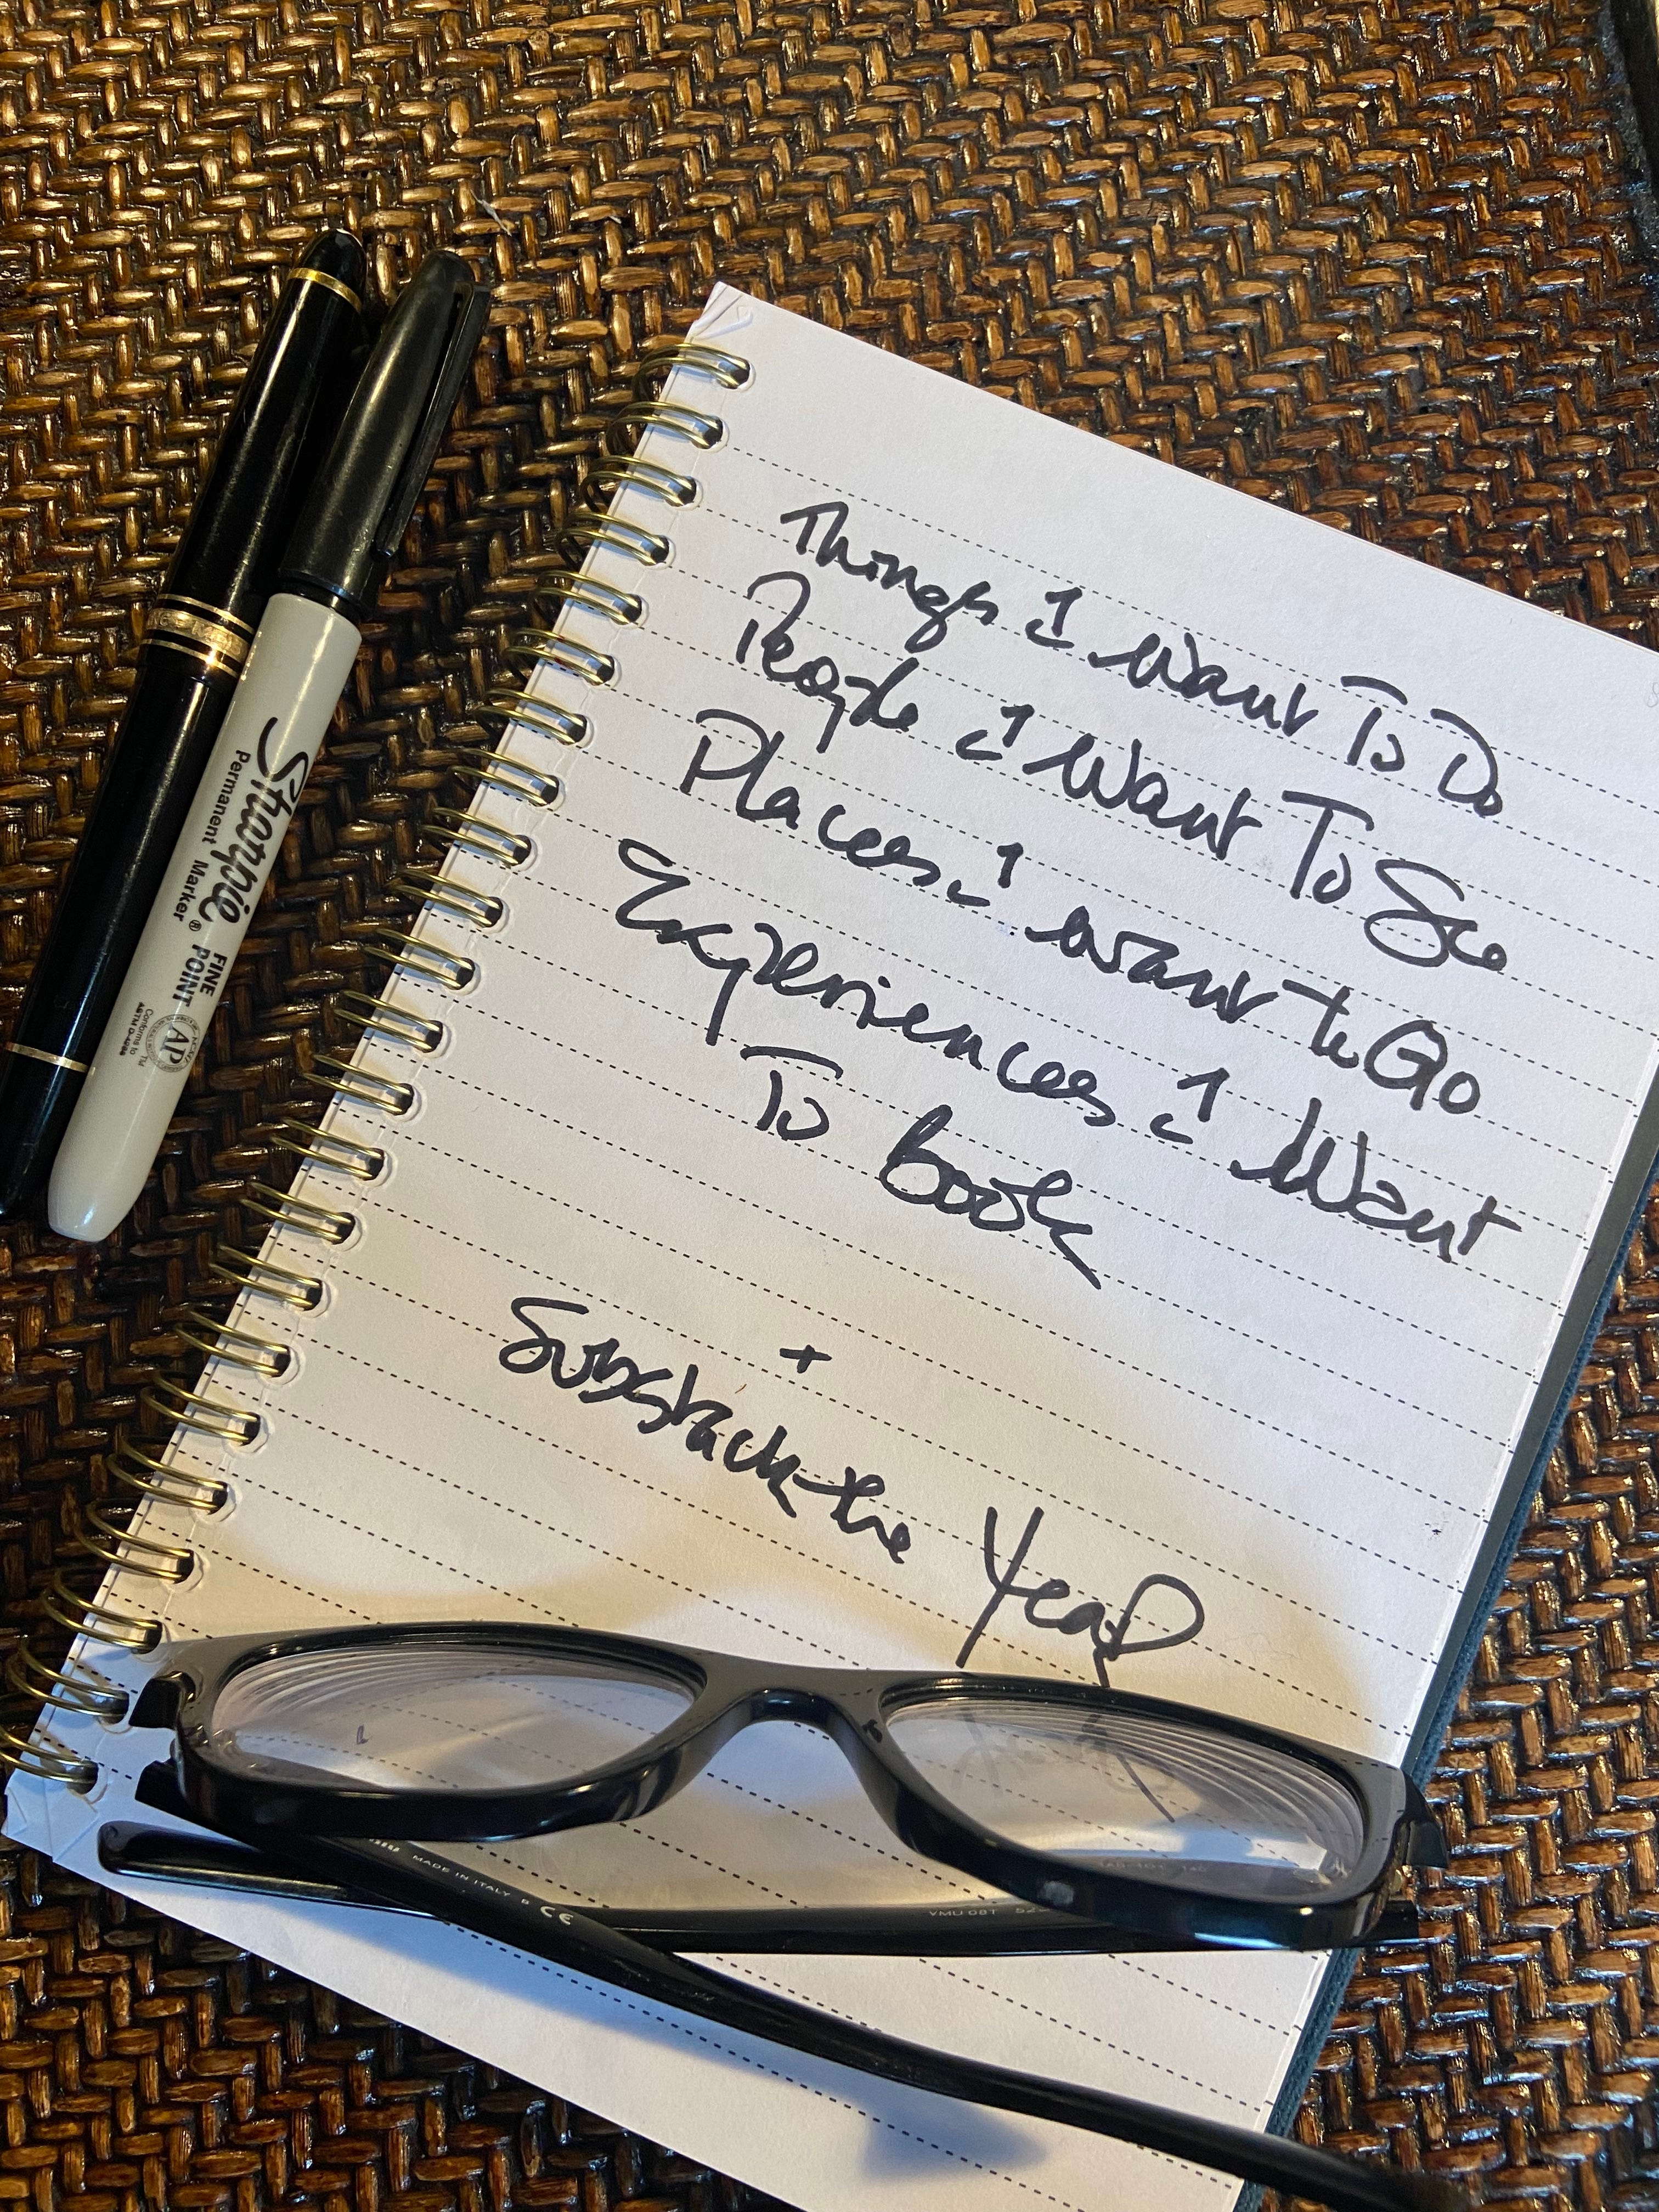 Things I Want To Do
People I Want To See
Places I want to Go
Experiences I Want
To Book
+
Substack the Year
Sharpie
Permanent Marker®
FINE
POINT
AP
Conforms to
ASTM D-4236
TM
MADE IN ITALY
CE